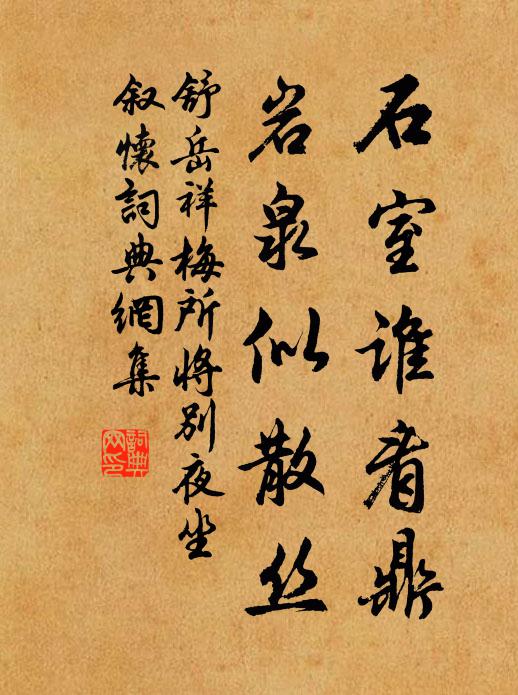 石室谁看鼎
岩泉似散丝
舒岳祥梅所将别夜坐
叙懷詞典網集
詞典网印